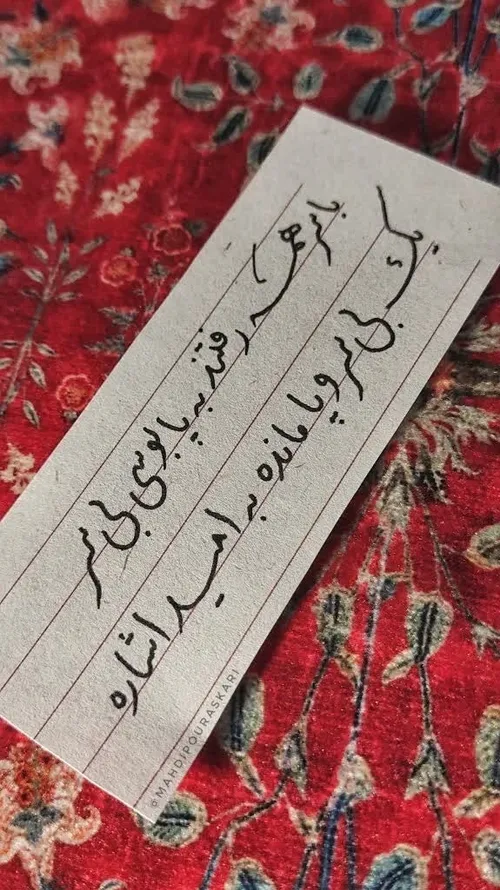 با سر همه رفتند به پابوسی بی سر
یک بی سر و پا مانده به امید اشاره
@MAHDIPOURASKARI